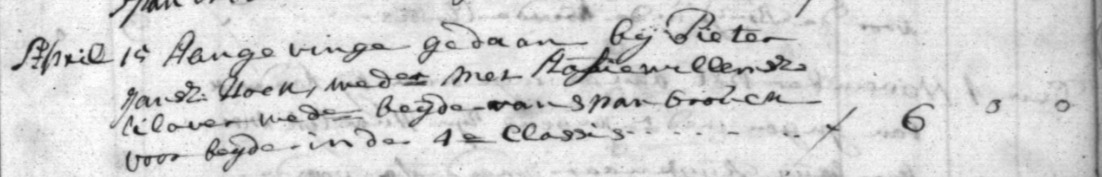 April 15 Aangevinge gedaan bij Pieter
Jansz: Hoek, wedr met Aafie willems
wede beijde van Spanbroeck
voor beijde in de 4e Classis - - - - - f 6 0 0